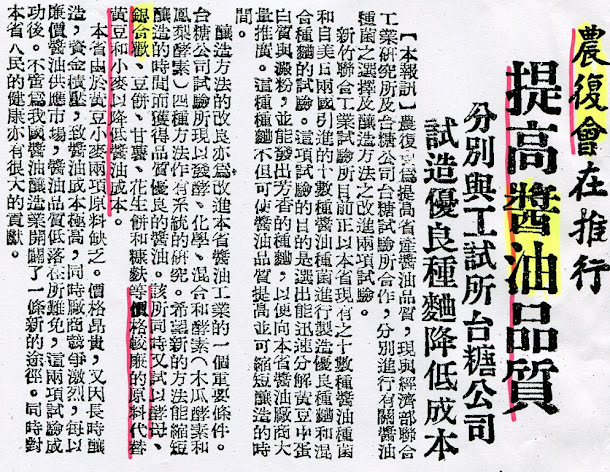 農復會在推行
提高醬油品質
分別與工試所台糖公司
試造優良種麯降低成本
【本報訊】農復會為提高省產醬油品質，現與經濟部聯合
工業研究所及台糖公司台糖試驗所合作，分別進行有關醬油
種菌之選擇及釀造方法之改進兩項試驗。
新竹聯合工業試驗所目前正以本省現有之十數種醬油種菌
和自美日兩國引進的十數種醬油種菌進行製造優良種麯和混
合種麯的試驗。這項試驗的目的是選出能迅速分解黃豆中蛋
白質與澱粉，並能發出芳香的種麯，以便向本省醬油廠商大
量推廣。這種種麯不但可使醬油品質提高並可縮短釀造的時
間。
釀造方法的改良亦為改進本省醬油工業的一個重要條件。
台糖公司試驗所現以發酵、化學、混合和酵素（木瓜酵素和
鳳梨酵素）四種方法作有系統的研究。希望新的方法能縮短
釀造的時間而獲得品質優良的醬油。該所同時又試以酵母、
銀合歡、豆餅、甘薯、花生餅和糠麩等價格較廉的原料代替
黃豆和小麥以降低醬油成本。
本省由於黃豆小麥兩項原料缺乏。價格昂貴，又因長時釀
造，資金積壓，致醬油成本極高，同時廠商競爭激烈，每以
廉價醬油供應市場，醬油品質低落在所難免，這兩項試驗成
功後。不啻為我國醬油釀造業開闢了一條新的途徑。同時對
本省人民的健康亦有很大的貢獻。